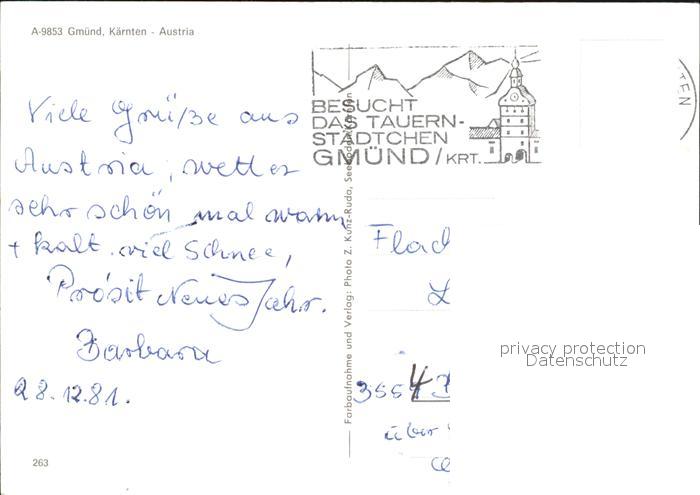 A-9853 Gmünd, Kärnten - Austria
BESUCHT
DAS TAUERN-
STÄDTCHEN
GMÜND/KRT.
TEN
Viele Grüße aus
Austria, wetter
sehr schön mal warm
+ kalt. viel Schnee,
Prosit Neues Jahr.
Barbara
28.12.81.
263
Farbaufnahme und Verlag: Photo Z. Kunz-Ruda,
355
4
über
privacy protection
Datenschutz